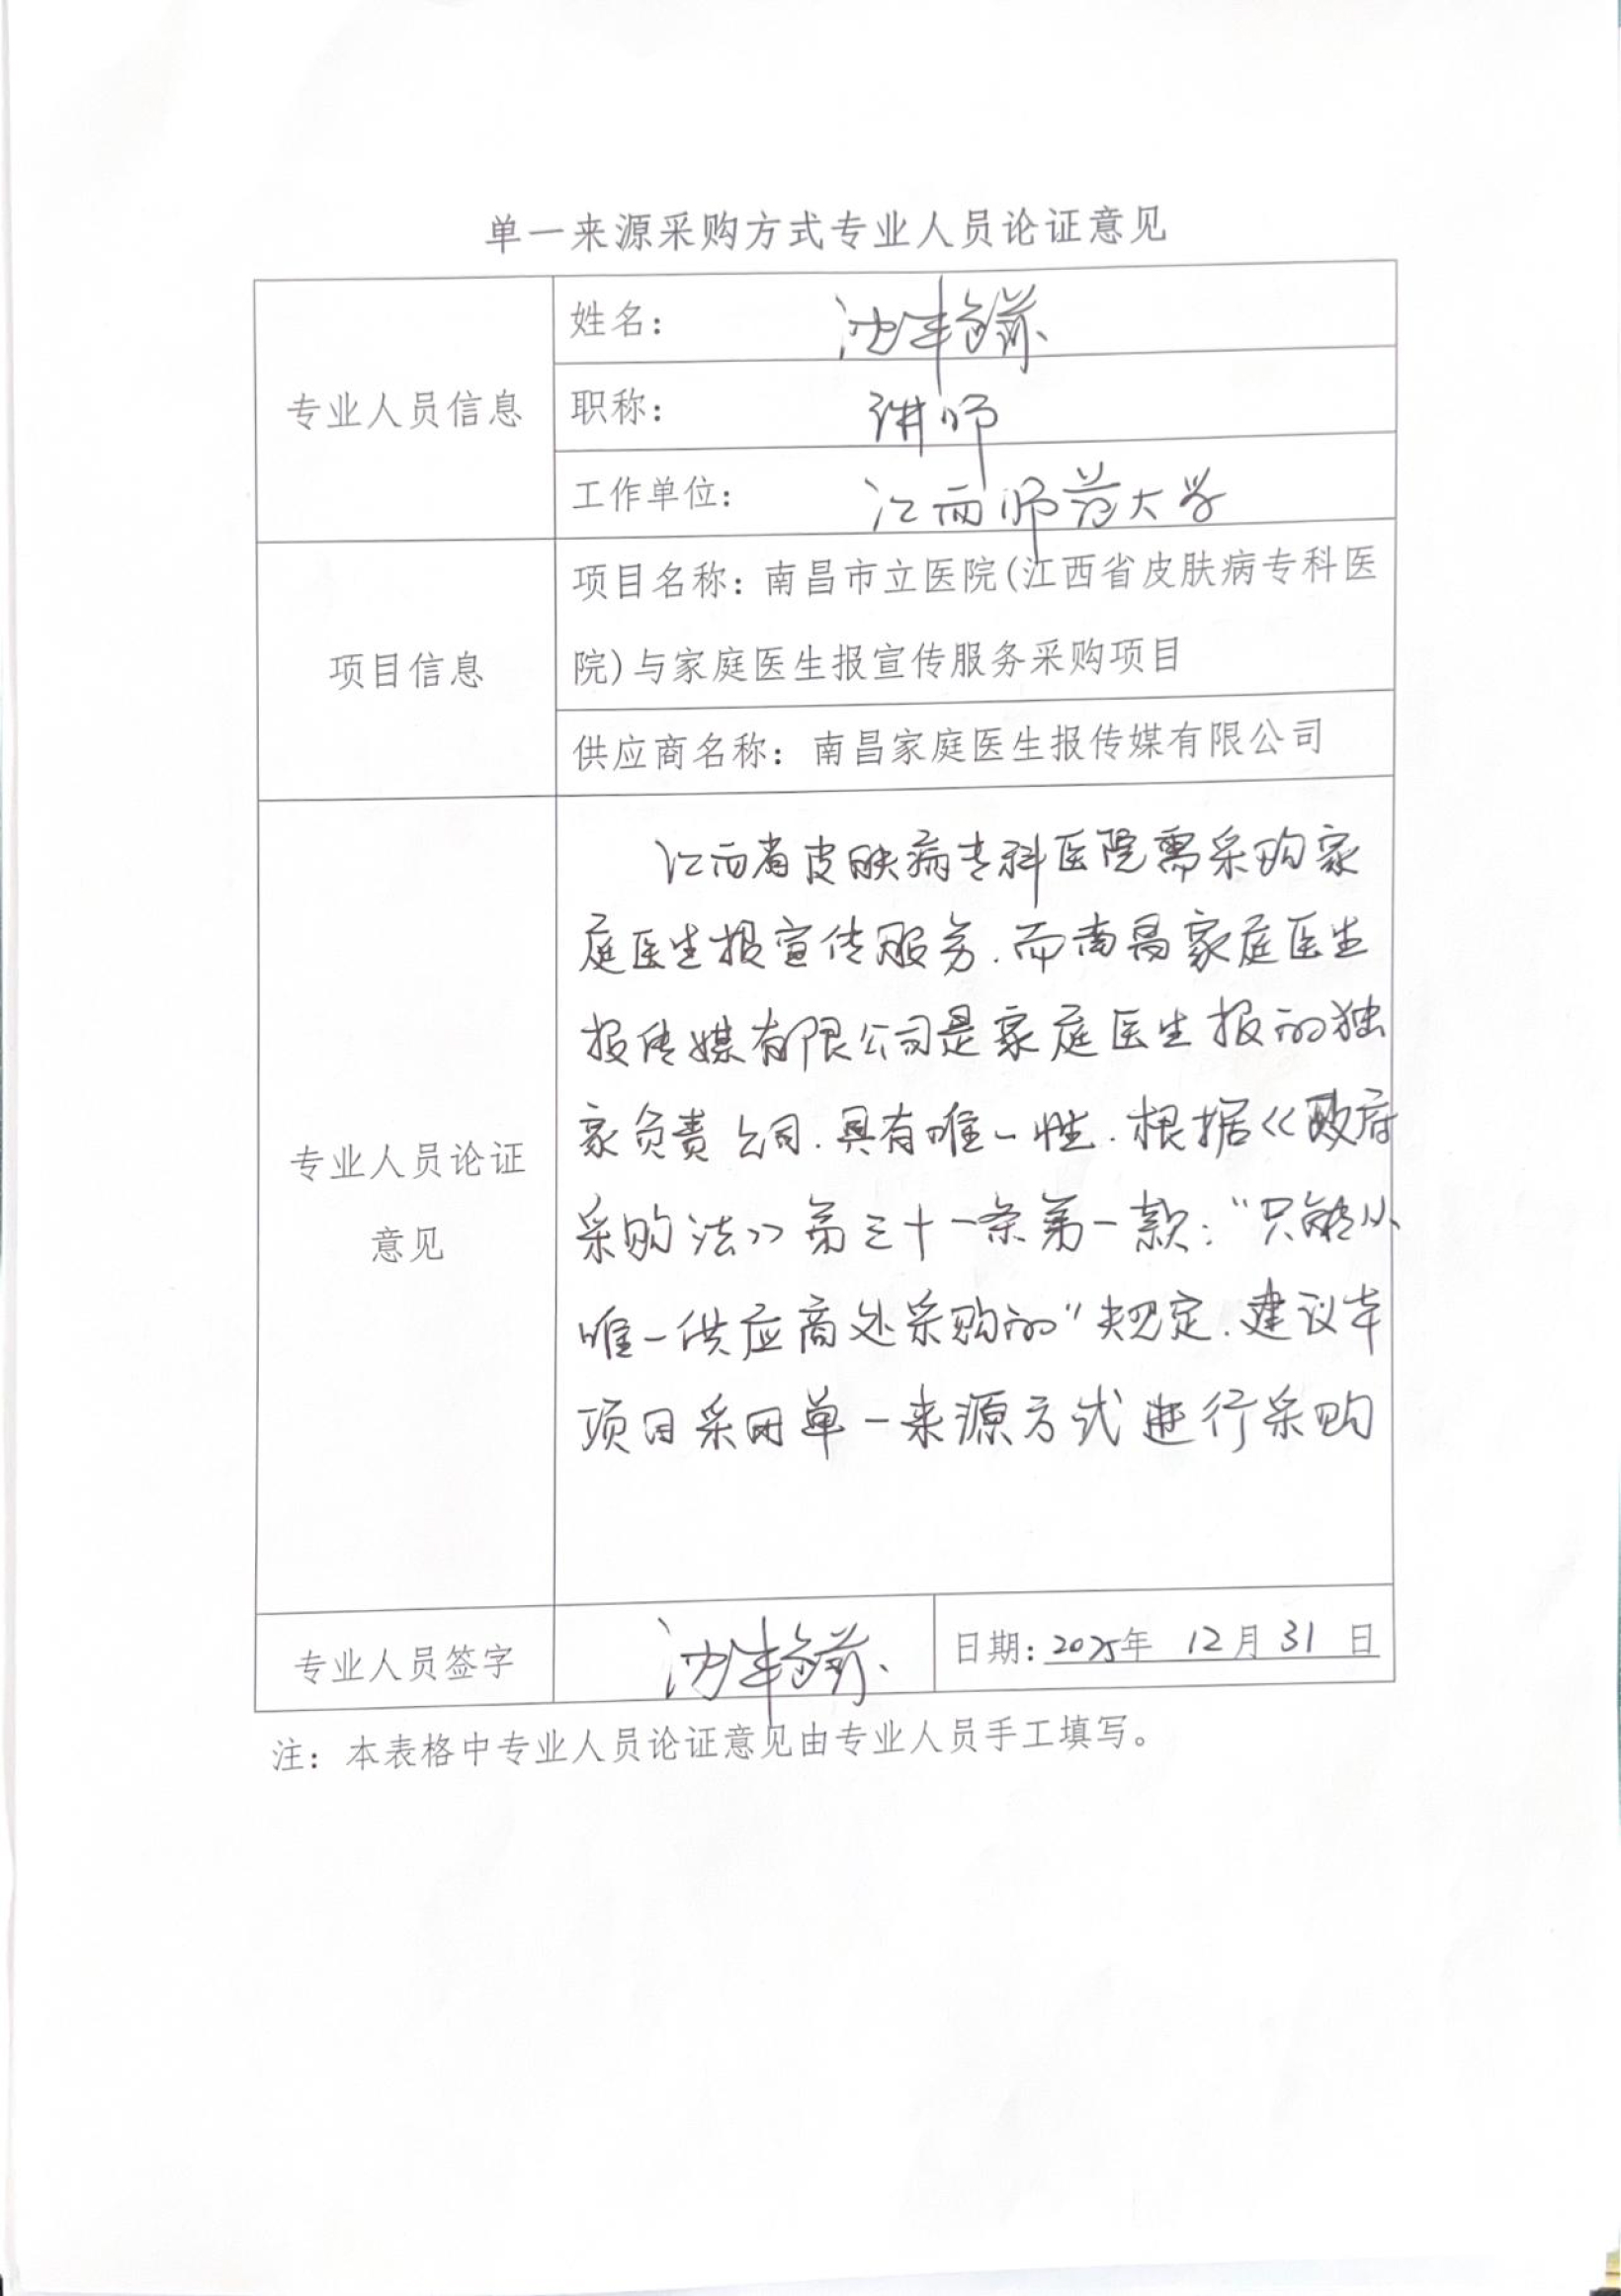 单一来源采购方式专业人员论证意见
专业人员信息
姓名：
职称： 讲师
工作单位： 江西师范大学
项目信息
项目名称：南昌市立医院(江西省皮肤病专科医
院)与家庭医生报宣传服务采购项目
供应商名称：南昌家庭医生报传媒有限公司
专业人员论证
意见
江西省皮肤病专科医院需采购家
庭医生报宣传服务.而南昌家庭医生
报传媒有限公司是家庭医生报的独
家负责公司.具有唯一性.根据《政府
采购法》第三十一条第一款:“只能从
唯一供应商处采购的”规定.建议本
项目采用单一来源方式进行采购
专业人员签字
日期:2025年 12月31日
注：本表格中专业人员论证意见由专业人员手工填写。